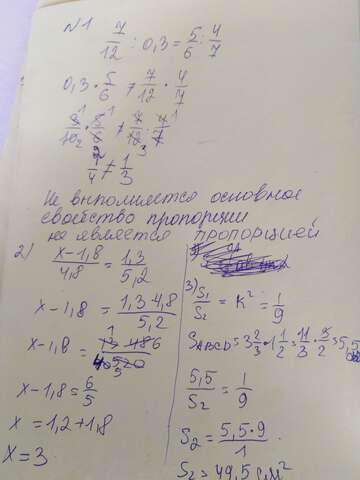 N1 7/12 : 0,3 = 5/6 : 4/7
0,3 · 5/6 ≠ 7/12 · 4/7
3/10 · 5/6 ≠ 7/12 · 4/7
1/4 ≠ 1/3
Не выполняется основное
свойство пропорции
не является пропорцией
2) x-1,8/4,8 = 1,3/5,2
x-1,8 = 1,3·4,8/5,2
x-1,8 =
x-1,8 = 6/5
x = 1,2+1,8
x = 3
3) S₁/S₂ = K² = 1/9
SABCD = 3 2/3 · 1 1/2 = 11/3 · 3/2 = 5,5
5,5/S₂ = 1/9
S₂ = 5,5·9/1
S₂ = 49,5 см²